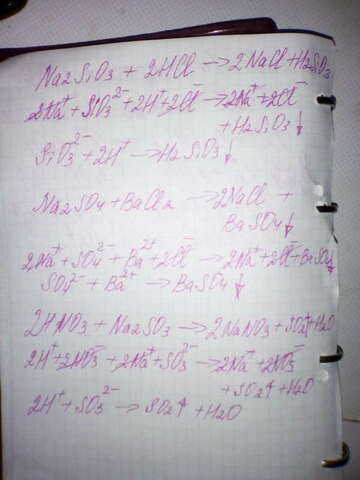 Na2SiO3 + 2HCl → 2NaCl + H2SiO3
2Na⁺ + SiO3²⁻ + 2H⁺ + 2Cl⁻ → 2Na⁺ + 2Cl⁻
+ H2SiO3↓
SiO3²⁻ + 2H⁺ → H2SiO3↓
Na2SO4 + BaCl2 → 2NaCl +
BaSO4↓
2Na⁺ + SO4²⁻ + Ba²⁺ + 2Cl⁻ → 2Na⁺ + 2Cl⁻ + BaSO4↓
SO4²⁻ + Ba²⁺ → BaSO4↓
2HNO3 + Na2SO3 → 2NaNO3 + SO2↑ + H2O
2H⁺ + 2NO3⁻ + 2Na⁺ + SO3²⁻ → 2Na⁺ + 2NO3⁻
+ SO2↑ + H2O
2H⁺ + SO3²⁻ → SO2↑ + H2O